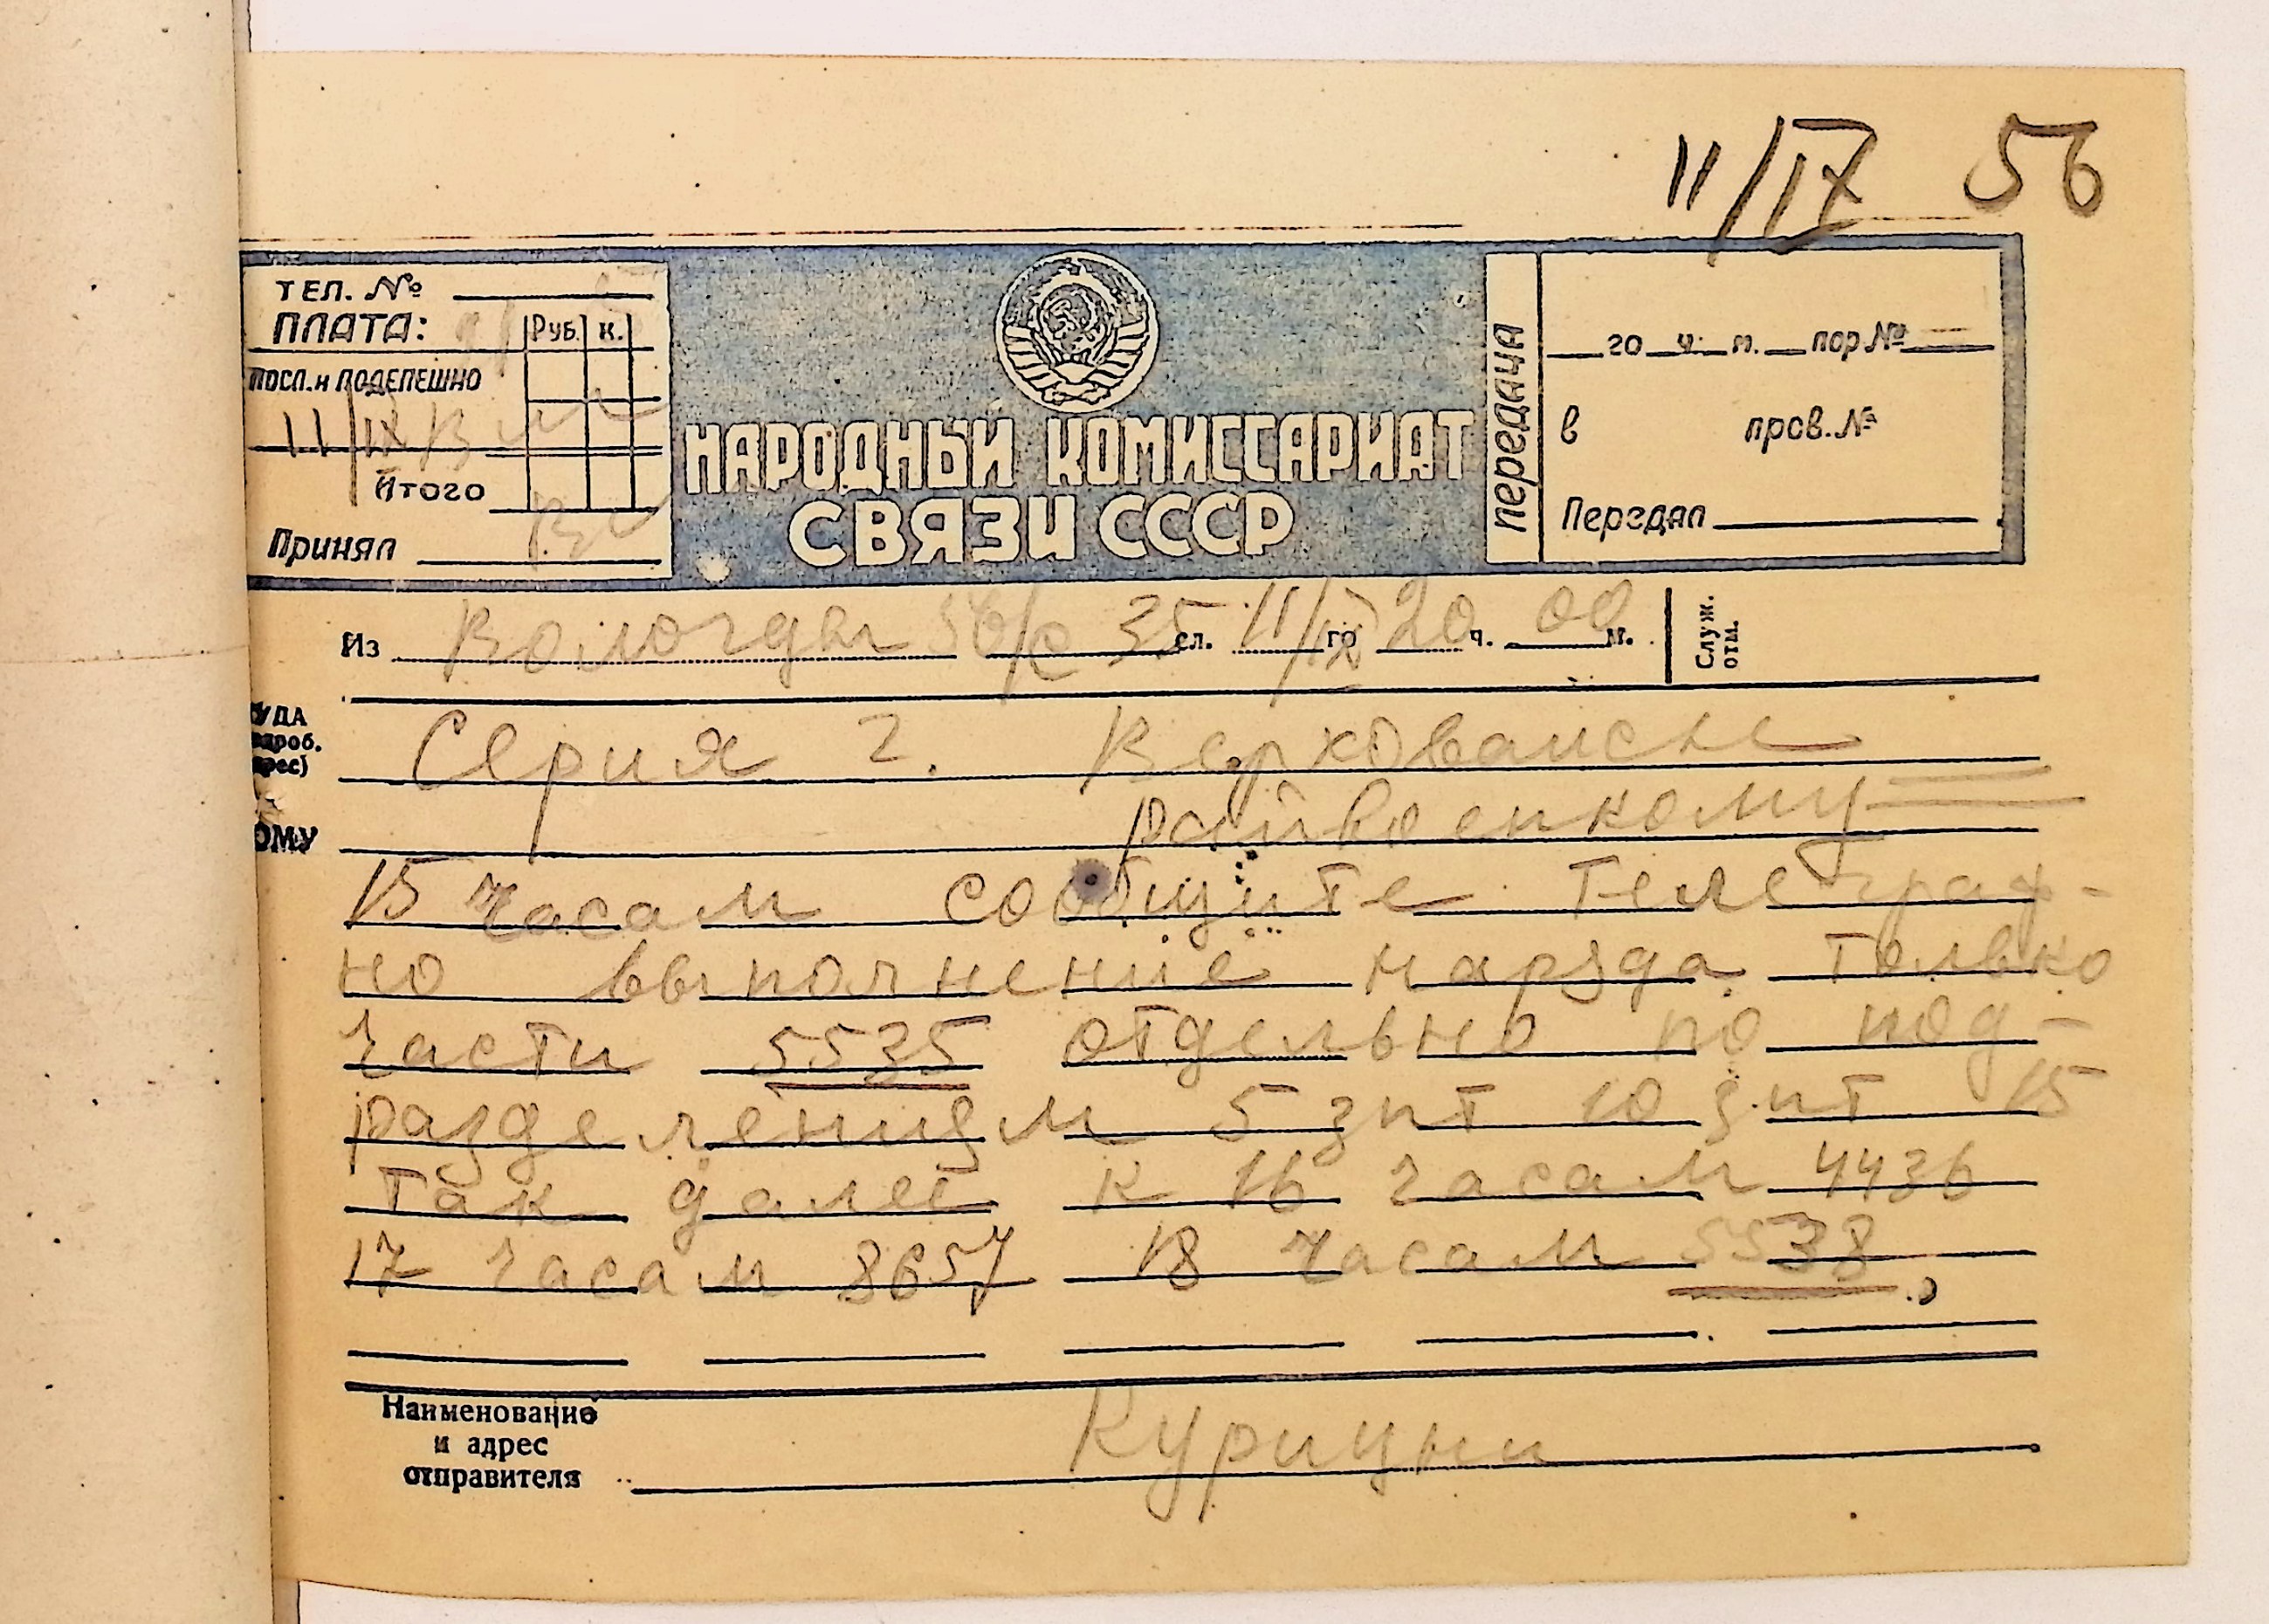 11/IX 56
ТЕЛ. №
ПЛАТА: Руб. к.
посл. и подепешно
11/IX
Итого
Принял
НАРОДНЫЙ КОМИССАРИАТ
СВЯЗИ СССР
передача
го ч. м. пор №
в пров. №
Передал
Из Вологды 56/с 35 сл. 11/IX го 20 ч. 00 м.
Служ. отм.
УДА
дроб.
рес)
Серия г. Верховаисне
ОМУ
райвоенкому =
15 часам сообщите телеграф-
но выполнение наряда только
части 5535 отдельно по под-
разделениям 5 зпт 10 зпт 15
так далее к 16 часам 4436
17 часам 8657 18 часам 5538
Наименование
и адрес
отправителя
Курицин